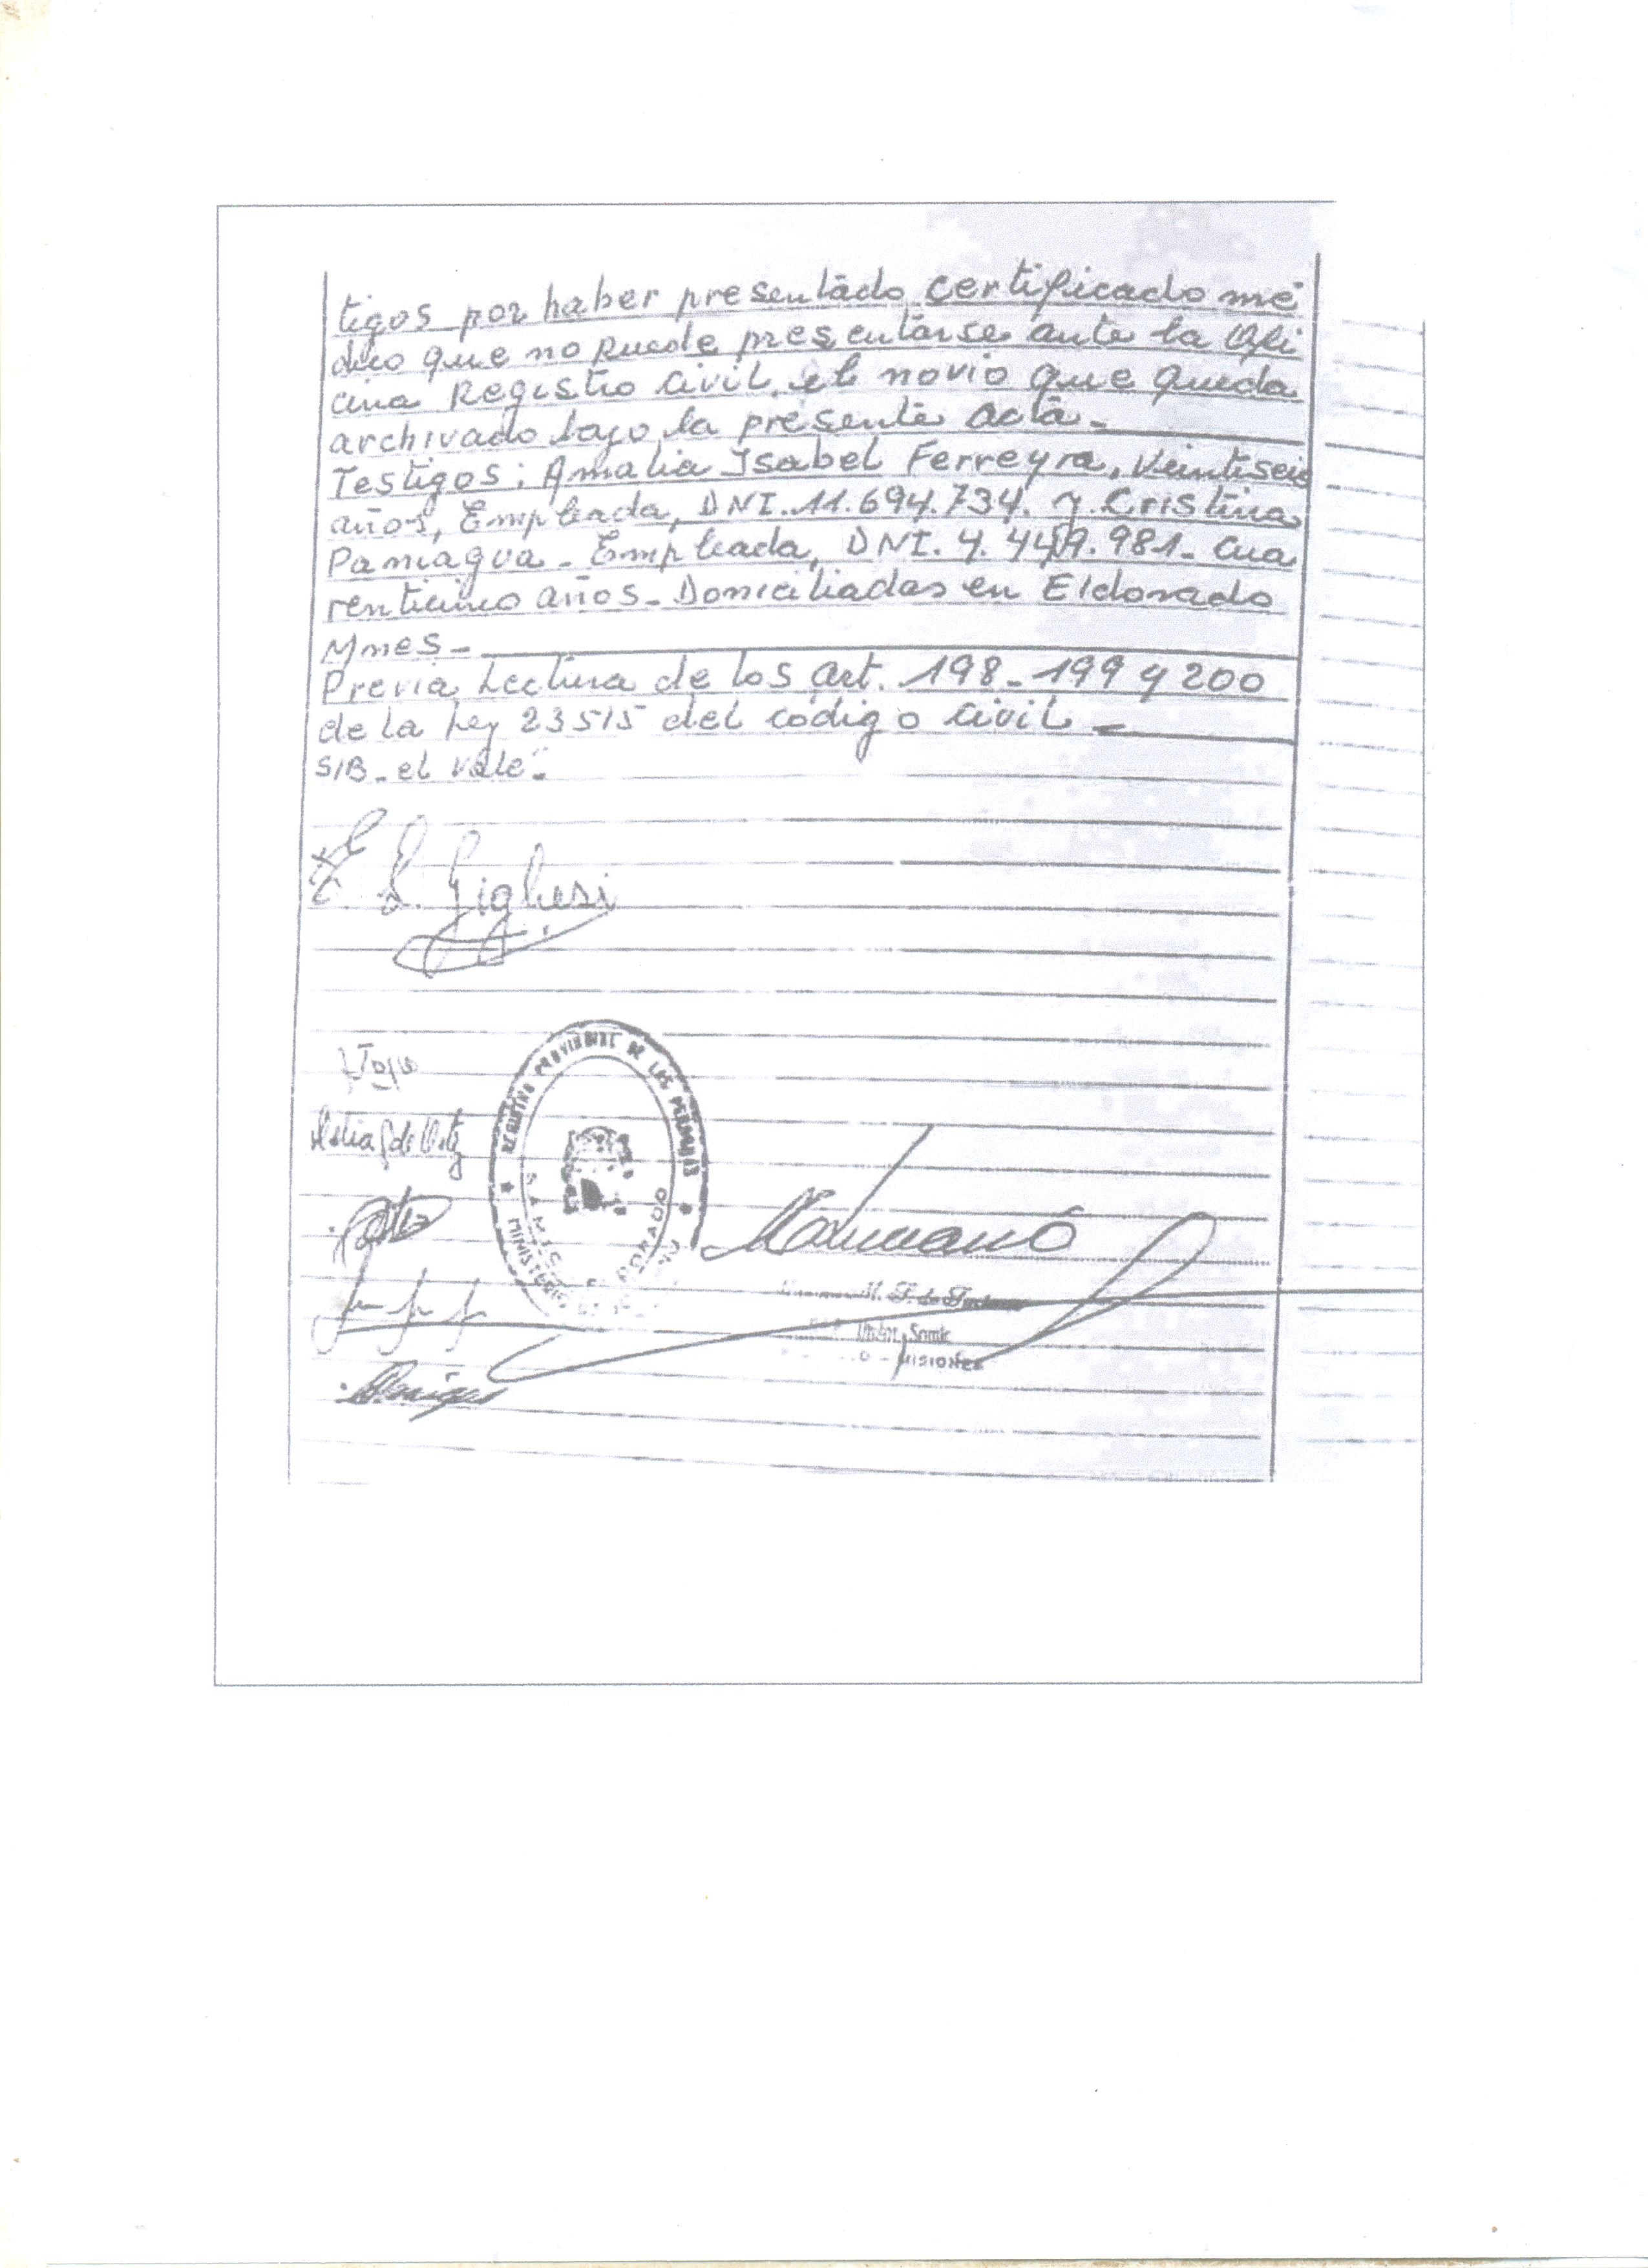 tigos por haber presentado certificado mé
dico que no puede presentarse ante la Ofi
cina Registro Civil, el novio que queda
archivado bajo la presente acta._
Testigos: Amalia Isabel Ferreyra, Veintiseis
años, Empleada, DNI. 11.694.734. y Cristina
Paniagua _ Empleada, DNI. 4.449.981_ Cua
renticinco años_ Domiciliadas en Eldorado
Mnes_
Previa Lectura de los art. 198_199 y 200
de la Ley 23515 del código civil _
S/B_ el vale._
E. L. Gighesi
REGISTRO PROVINCIAL DE LAS PERSONAS
S.A.M.I.C.
MISIONES